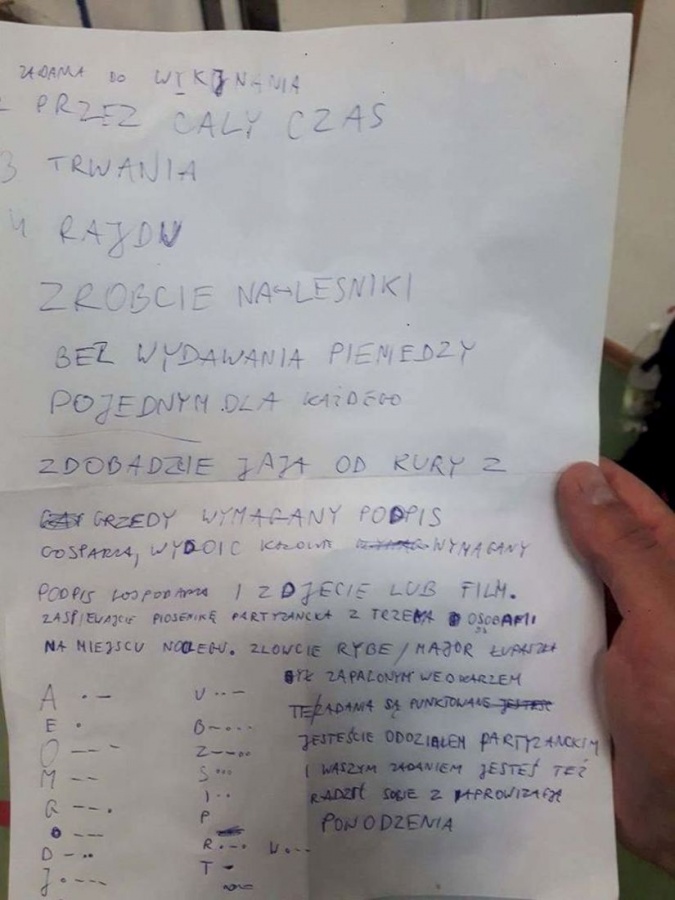 ZADANIA DO WYKONANIA
2 PRZEZ CALY CZAS
3 TRWANIA
4 RAJDU
ZROBCIE NALESNIKI
BEZ WYDAWANIA PIENIEDZY
POJEDNYM DLA KAŻDEGO
ZDOBADZCIE JAJA OD KURY Z
GRZEDY WYMAGANY PODPIS
WYDOIC WYMAGANY
PODPIS I ZDJECIE LUB FILM.
ZASPIEWAJCIE PIOSENKE PARTYZANCKA Z TRZEMA OSOBAMI
NA MIEJSCU NOCLEGU. ZLOWCIE RYBE / MAJOR ŁUPASZKA
BYŁ ZAPALONYM WEDKARZEM
TE ZADANIA SĄ PUNKTOWANE
JESTEŚCIE ODDZIAŁEM PARTYZANCKIM
I WASZYM ZADANIEM JESTEŚ TEŻ
RADZIĆ SOBIE Z APROWIZACJĄ
POWODZENIA
A .-
E .
O ---
M --
G --.
O ---
D -..
J .---
U ..-
B -...
Z --..
S ...
I ..
P
R .-.
T -